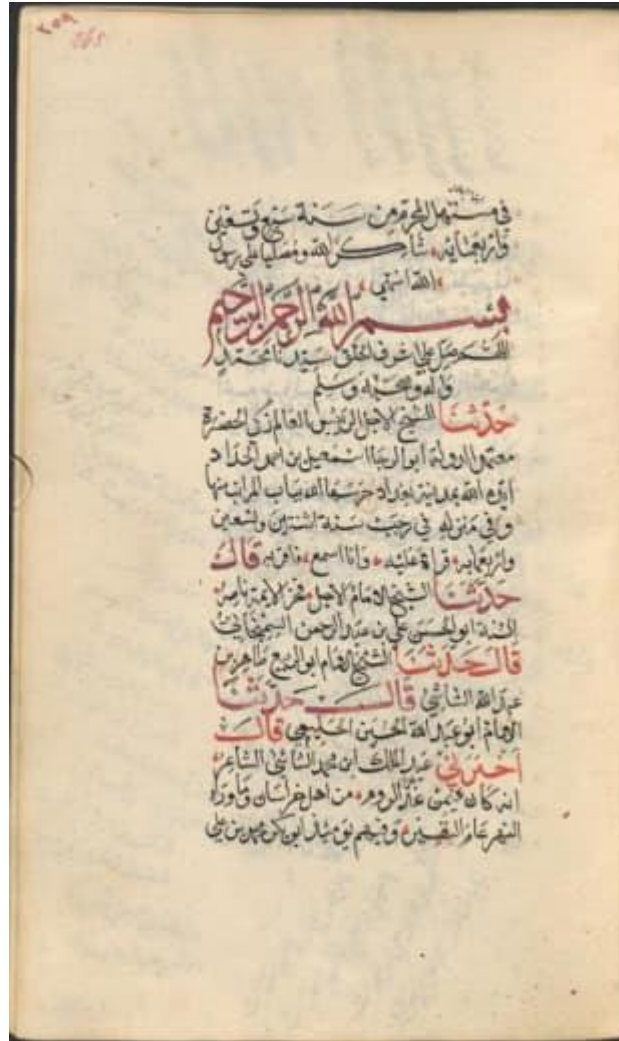 ٢٥٩
في مستهل المحرم من سنة سبع وتسعين
واربعمايه شاكر الله ومصليا على رسول
الله
بسم الله الرحمن الرحيم
اللهم صل على اشرف الخلق سيدنا محمد
واله وصحبه وسلم
حدثنا الشيخ الاجل الرئيس العالم الحضرة
معتمد الدولة ابو الرجا اسمعيل بن احمد الحداد
الله بمدينة بغداد حرسها الله بباب المراتب منها
وفي منزله في رجب سنة اثنتين وتسعين
واربعمايه قراة عليه وانا اسمع قال
حدثنا الشيخ الامام الاجل فخر الايمة ناصر
السنة ابو الحسن علي بن عبد الرحمن السمنجاني
قال حدثنا الشيخ الامام ابو الربيع طاهر بن
عبد الله قال حدثنا
الامام ابو عبد الله الحسين الحليمي قال
اخبرني عبد الملك ابن محمد الشاشي الشاعر
انه كان فيمن غزا الروم من اهل خراسان وما وراء
النهر عام النفير وفيهم ابو بكر محمد بن علي